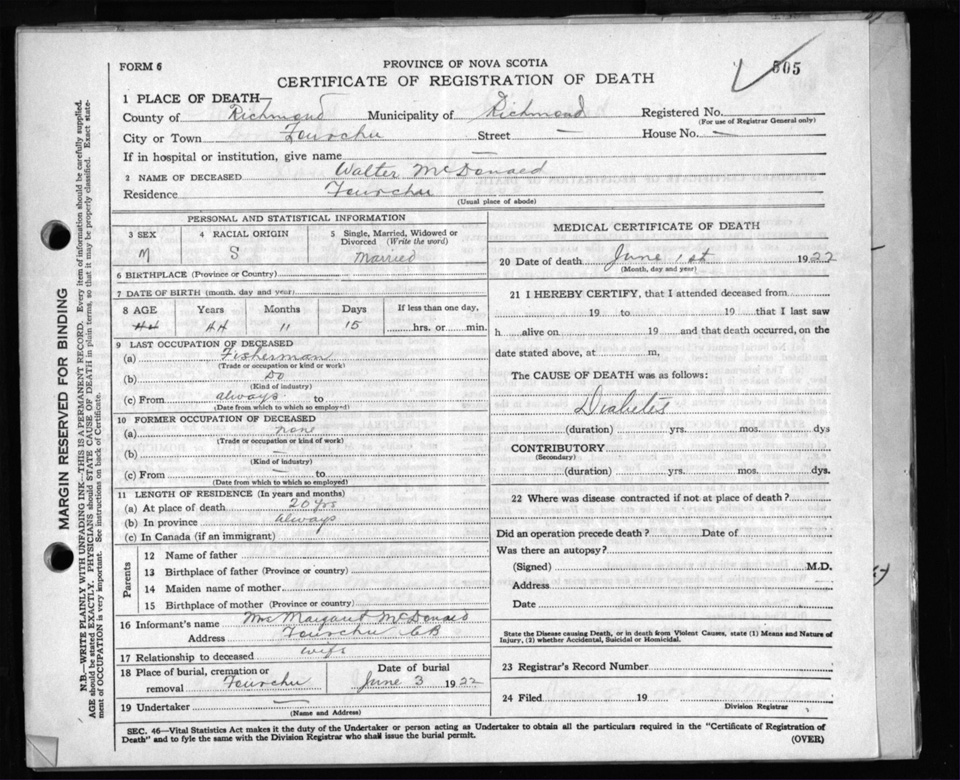 FORM 6
PROVINCE OF NOVA SCOTIA
CERTIFICATE OF REGISTRATION OF DEATH
505
1 PLACE OF DEATH—
County of Richmond Municipality of Richmond Registered No.
(For use of Registrar General only)
City or Town Fourchu Street — House No. —
If in hospital or institution, give name —
2 NAME OF DECEASED Walter McDonald
Residence Fourchu
(Usual place of abode)
PERSONAL AND STATISTICAL INFORMATION
3 SEX M
4 RACIAL ORIGIN S
5 Single, Married, Widowed or Divorced (Write the word)
Married
6 BIRTHPLACE (Province or Country)
7 DATE OF BIRTH (month, day and year)
8 AGE Years Months Days If less than one day,
44 44 11 15 hrs. or min.
9 LAST OCCUPATION OF DECEASED
(a) Fisherman
(Trade or occupation or kind or work)
(b) Do
(Kind of industry)
(c) From always to
(Date from which to which so employed)
10 FORMER OCCUPATION OF DECEASED
(a) none
(Trade or occupation or kind of work)
(b) —
(Kind of industry)
(c) From — to
(Date from which to which so employed)
11 LENGTH OF RESIDENCE (In years and months)
(a) At place of death 20 yrs
(b) In province always
(c) In Canada (if an immigrant)
Parents
12 Name of father
13 Birthplace of father (Province or country)
14 Maiden name of mother
15 Birthplace of mother (Province or country)
16 Informant's name Mrs Margaret McDonald
Address Fourchu CB
17 Relationship to deceased wife
18 Place of burial, cremation or removal Fourchu
Date of burial
June 3 1922
19 Undertaker —
(Name and Address)
MEDICAL CERTIFICATE OF DEATH
20 Date of death June 1st 1922
(Month, day and year)
21 I HEREBY CERTIFY, that I attended deceased from
19 to 19 that I last saw
h alive on 19 and that death occurred, on the
date stated above, at m,
The CAUSE OF DEATH was as follows:
Diabetes
(duration) yrs. mos. dys
CONTRIBUTORY
(Secondary)
(duration) yrs. mos. dys.
22 Where was disease contracted if not at place of death?
Did an operation precede death? Date of
Was there an autopsy?
(Signed) M.D.
Address
Date
State the Disease causing Death, or in death from Violent Causes, state (1) Means and Nature of
Injury, (2) whether Accidental, Suicidal or Homicidal.
23 Registrar's Record Number
24 Filed 19
Division Registrar
SEC. 46—Vital Statistics Act makes it the duty of the Undertaker or person acting as Undertaker to obtain all the particulars required in the "Certificate of Registration of
Death" and to fyle the same with the Division Registrar who shall issue the burial permit.
(OVER)
MARGIN RESERVED FOR BINDING
N.B.—WRITE PLAINLY WITH UNFADING INK—THIS IS A PERMANENT RECORD. Every item of information should be carefully supplied.
AGE should be stated EXACTLY. PHYSICIANS should STATE CAUSE OF DEATH in plain terms, so that it may be properly classified. Exact state-
ment of OCCUPATION is very important. See instructions on back of Certificate.